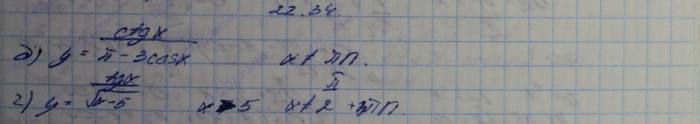 22.34.
б) y = ctgx / π - 3cosx    x ≠ πn.
г) y = tgx / √x-5    x > 5    x ≠ π/2 + πn